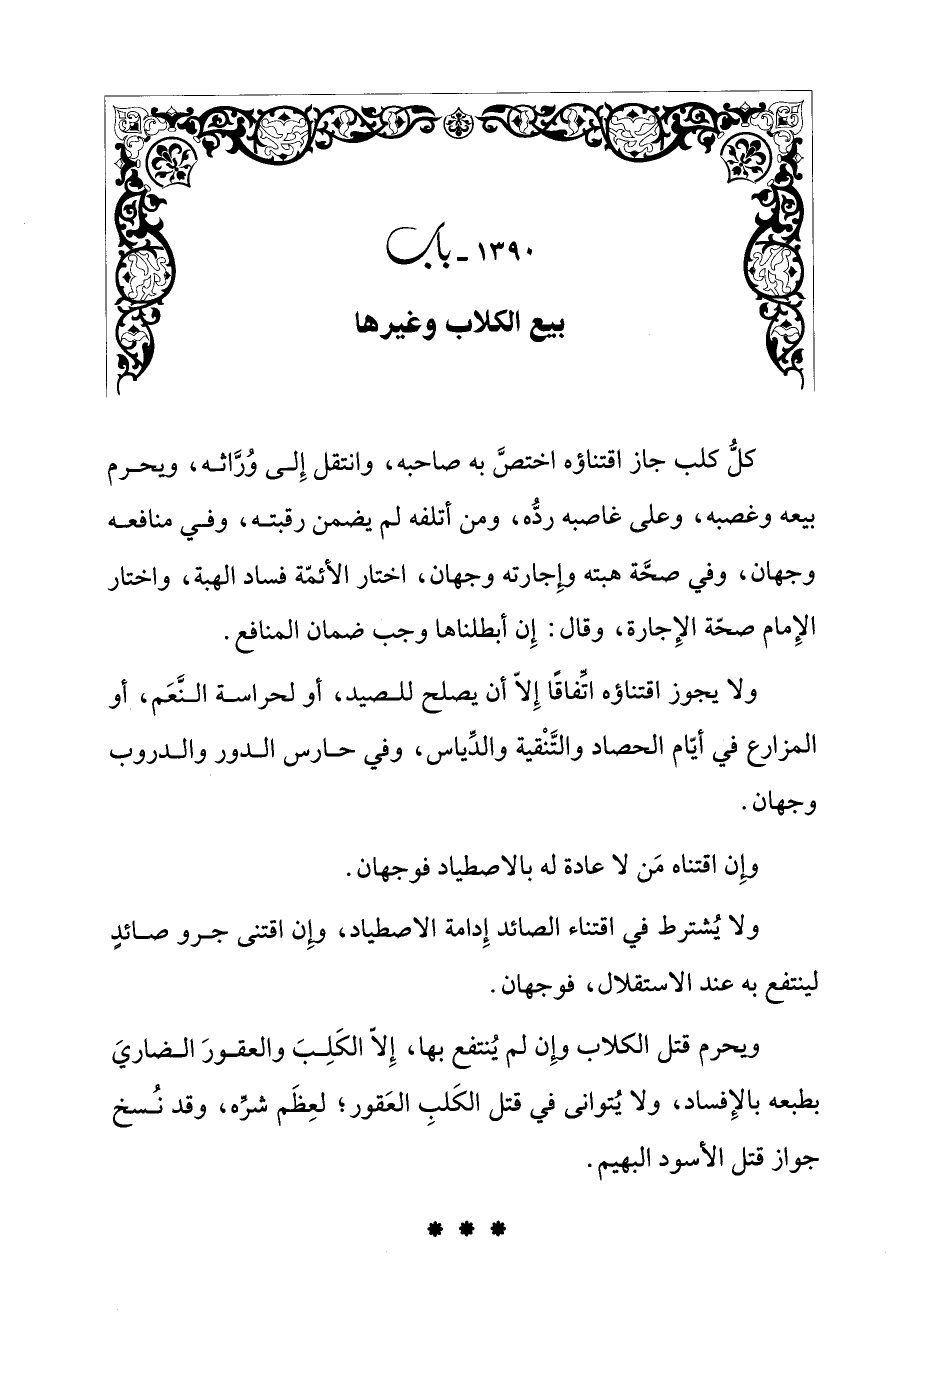 ١٣٩٠ - باب
بيع الكلاب وغيرها
كلُّ كلب جاز اقتناؤه اختصَّ به صاحبه، وانتقل إلى وُرَّاثه، ويحرم
بيعه وغصبه، وعلى غاصبه ردُّه، ومن أتلفه لم يضمن رقبته، وفي منافعه
وجهان، وفي صحَّة هبته وإجارته وجهان، اختار الأئمّة فساد الهبة، واختار
الإمام صحّة الإجارة، وقال: إن أبطلناها وجب ضمان المنافع.
ولا يجوز اقتناؤه اتِّفاقًا إلاّ أن يصلح للصيد، أو لحراسة النَّعَم، أو
المزارع في أيّام الحصاد والتَّنْقية والدِّياس، وفي حارس الدور والدروب
وجهان.
وإن اقتناه مَن لا عادة له بالاصطياد فوجهان.
ولا يُشترط في اقتناء الصائد إدامة الاصطياد، وإن اقتنى جرو صائدٍ
لينتفع به عند الاستقلال، فوجهان.
ويحرم قتل الكلاب وإن لم يُنتفع بها، إلاّ الكَلِبَ والعقورَ الضاريَ
بطبعه بالإفساد، ولا يُتوانى في قتل الكَلبِ العَقور؛ لعِظَم شرِّه، وقد نُسخ
جواز قتل الأسود البهيم.
* * *